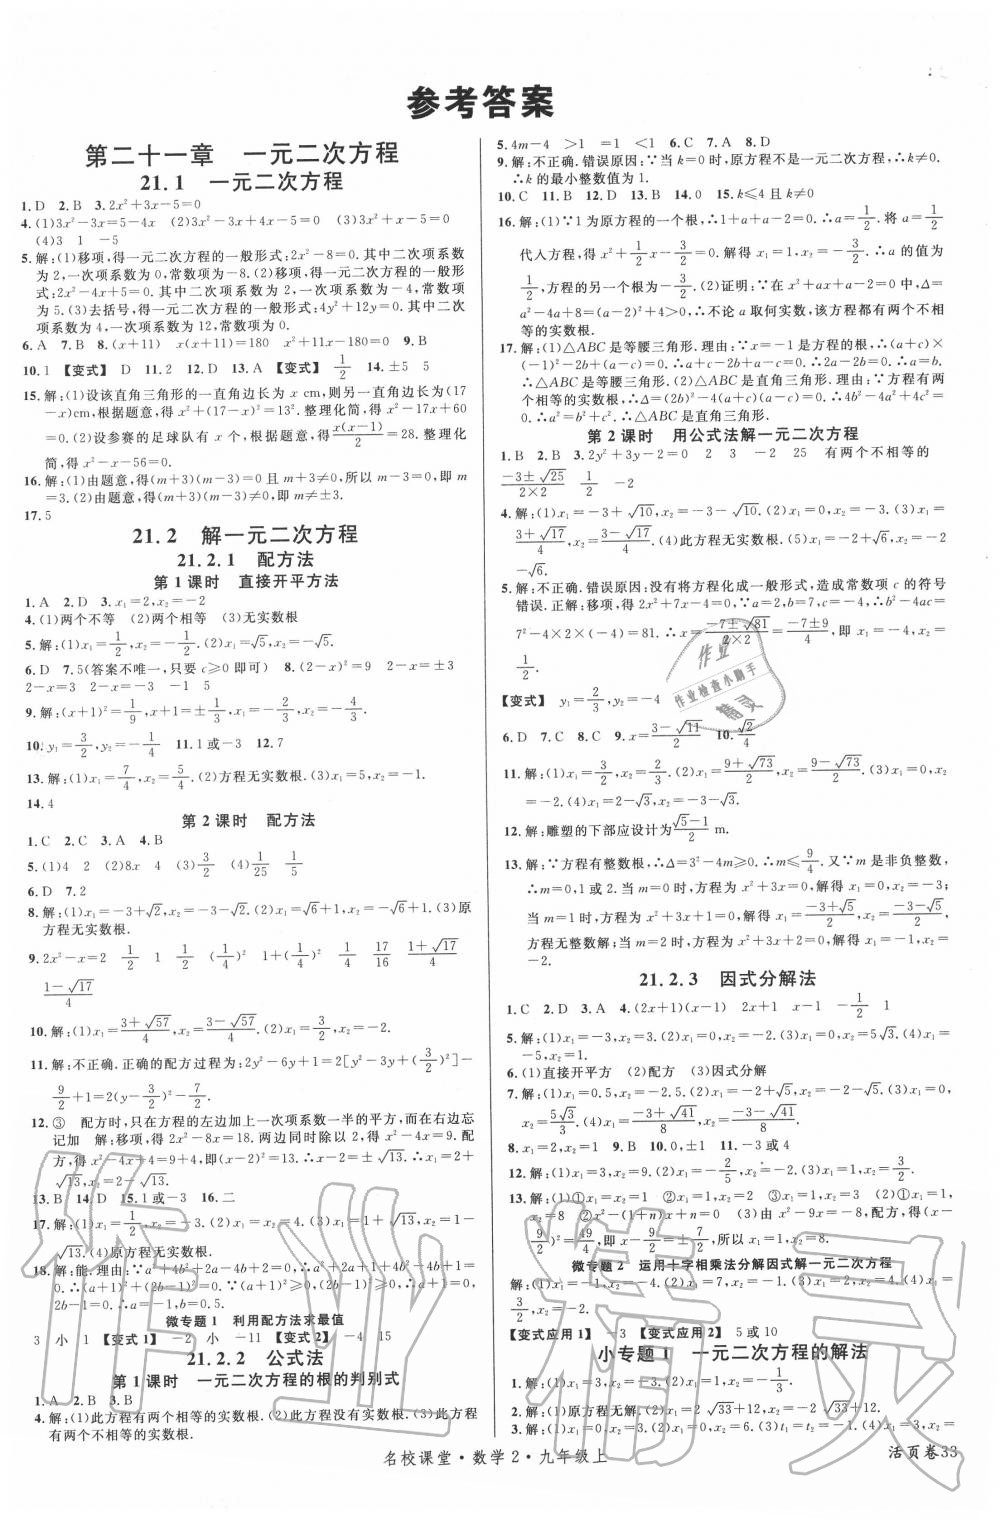 参考答案
第二十一章　一元二次方程
21.1　一元二次方程
1.D　2.B　3.2x²+3x-5=0
4.(1)3x²-3x=5-4x　(2)3x²-3x+4x-5=0　(3)3x²+x-5=0
(4)3　1　-5
5.解:(1)移项,得一元二次方程的一般形式:2x²-8=0.其中二次项系数
为2,一次项系数为0,常数项为-8.(2)移项,得一元二次方程的一般形
式:2x²-4x+5=0.其中二次项系数为2,一次项系数为-4,常数项
为5.(3)去括号,得一元二次方程的一般形式:4y²+12y=0.其中二次
项系数为4,一次项系数为12,常数项为0.
6.A　7.B　8.(x+11)　x(x+11)=180　x²+11x-180=0　9.B
10.1　【变式】　D　11.2　12.D　13.A　【变式】　1/2　14.±5　5
15.解:(1)设该直角三角形的一直角边长为 x cm,则另一直角边长为(17
-x)cm,根据题意,得x²+(17-x)²=13².整理化简,得x²-17x+60
=0.(2)设参赛的足球队有 x 个,根据题意,得x(x-1)/2=28.整理化
简,得x²-x-56=0.
16.解:(1)由题意,得(m+3)(m-3)=0且m+3≠0,所以m-3=0,即m
=3.(2)由题意,得(m+3)(m-3)≠0,即m≠±3.
17.5
21.2　解一元二次方程
21.2.1　配方法
第1课时　直接开平方法
1.A　2.D　3.x₁=2,x₂=-2
4.(1)两个不等　(2)两个相等　(3)无实数根
5.解:(1)x₁=1/2,x₂=-1/2.(2)x₁=√5,x₂=-√5.
6.D　7.5(答案不唯一,只要c≥0即可)　8.(2-x)²=9　2-x=±3
2-x=3　2-x=-3　-1　5
9.解:(x+1)²=1/9,x+1=±1/3,x₁=-2/3,x₂=-4/3.
10.y₁=3/2,y₂=-1/2　11.1或-3　12.7
13.解:(1)x₁=7/4,x₂=5/4.(2)方程无实数根.
14.4
第2课时　配方法
1.C　2.C　3.A　4.B
5.(1)4　2　(2)8x　4　(3)3/2　(4)1/25　1/5
6.D　7.2
8.解:(1)x₁=-3+√2,x₂=-3-√2.(2)x₁=√6+1,x₂=-√6+1.(3)原
方程无实数根.
9.2x²-x=2　1/2　1　1/2　1/4　17/16　(1+√17)/4
(1-√17)/4
10.解:(1)x₁=(3+√57)/4,x₂=(3-√57)/4.(2)x₁=3/2,x₂=-2.
11.解:不正确.正确的配方过程为:2y²-6y+1=2[y²-6y+(3/2)²]-
9/2+1=2(y-3/2)²-7/2.
12.③　配方时,只在方程的左边加上一次项系数一半的平方,而在右边忘
记加　解:移项,得2x²-8x=18.两边同时除以2,得x²-4x=9.配
方,得x²-4x+4=9+4,即(x-2)²=13.∴x-2=±√13.∴x₁=2+
√13,x₂=2-√13.
13.B　14.D　15.1或-3　16.二
17.解:(1)x₁=1/2,x₂=-3.(2)x₁=5,x₂=-3.(3)x₁=1+√13,x₂=1-
√13.(4)原方程无实数根.
18.解:能.理由:∵a²+4b²+2a-4b+2=0,∴a²+2a+1+4b²-4b+1=
0.∴(a+1)²+(2b-1)²=0.∵(a+1)²≥0,(2b-1)²≥0,∴a+1=0,
2b-1=0.∴a=-1,b=0.5.
微专题1　利用配方法求最值
3　小　1　【变式1】　-2　小　-11　【变式2】　-4　15
21.2.2　公式法
第1课时　一元二次方程的根的判别式
1.A　2.B　3.B
4.解:(1)此方程有两个相等的实数根.(2)此方程没有实数根.(3)此方程
有两个不相等的实数根.
5.4m-4　>1　=1　<1　6.C　7.A　8.D
9.解:不正确.错误原因:∵当k=0时,原方程不是一元二次方程,∴k≠0.
∴k的最小整数值为1.
10.C　11.B　12.D　13.B　14.0　15.k≤4且k≠0
16.解:(1)∵1为原方程的一个根,∴1+a+a-2=0.∴a=1/2.将a=1/2
代入方程,得x²+1/2x-3/2=0.解得x₁=1,x₂=-3/2.∴a的值为
1/2,方程的另一个根为-3/2.(2)证明:∵在x²+ax+a-2=0中,Δ=
a²-4a+8=(a-2)²+4>0,∴不论a取何实数,该方程都有两个不相
等的实数根.
17.解:(1)△ABC是等腰三角形.理由:∵x=-1是方程的根,∴(a+c)×
(-1)²-2b+(a-c)=0.∴a+c-2b+a-c=0.∴a-b=0.∴a=b.
∴△ABC是等腰三角形.(2)△ABC是直角三角形.理由:∵方程有两
个相等的实数根,∴Δ=(2b)²-4(a+c)(a-c)=0.∴4b²-4a²+4c²=
0.∴a²=b²+c².∴△ABC是直角三角形.
第2课时　用公式法解一元二次方程
1.B　2.B　3.2y²+3y-2=0　2　3　-2　25　有两个不相等的
(-3±√25)/(2×2)　1/2　-2
4.解:(1)x₁=-3+√10,x₂=-3-√10.(2)x₁=0,x₂=-3.(3)x₁=
(3+√17)/4,x₂=(3-√17)/4.(4)此方程无实数根.(5)x₁=-2+√6,x₂=-2
-√6.
5.解:不正确.错误原因:没有将方程化成一般形式,造成常数项c的符号
错误.正解:移项,得2x²+7x-4=0,∵a=2,b=7,c=-4,∴b²-4ac=
7²-4×2×(-4)=81.∴x=(-7±√81)/(2×2)=(-7±9)/4,即x₁=-4,x₂=
1/2.
【变式】　y₁=2/3,y₂=-4
6.D　7.C　8.C　9.x=(3-√11)/2　10.√2/4
11.解:(1)x₁=3/2,x₂=2/3.(2)x₁=(9+√73)/2,x₂=(9-√73)/2.(3)x₁=x₂
=-2.(4)x₁=2-√3,x₂=-√3.
12.解:雕塑的下部应设计为(√5-1)/2 m.
13.解:∵方程有整数根,∴Δ=3²-4m≥0.∴m≤9/4.又∵m是非负整数,
∴m=0,1或2.当m=0时,方程为x²+3x=0,解得x₁=0,x₂=-3;
当m=1时,方程为x²+3x+1=0,解得x₁=(-3+√5)/2,x₂=(-3-√5)/2,
方程无整数解;当m=2时,方程为x²+3x+2=0,解得x₁=-1,x₂=
-2.
21.2.3　因式分解法
1.C　2.D　3.A　4.(2x+1)(x-1)　2x+1　x-1　-1/2　1
5.解:(1)x₁=-3,x₂=3.(2)x₁=0,x₂=-2.(3)x₁=0,x₂=5.(4)x₁=
-5,x₂=1.
6.(1)直接开平方　(2)配方　(3)因式分解
7.解:(1)x₁=0.5,x₂=-2.5.(2)x₁=-2+√5,x₂=-2-√5.(3)x₁=0,
x₂=5√3/3.(4)x₁=(-3+√41)/8,x₂=(-3-√41)/8.
8.x₁=2,x₂=1　9.B　10.0,±1　11.-3或4
12.解:(1)x₁=3,x₂=9.(2)x₁=2/5,x₂=-2.(3)x₁=-1,x₂=3/2.
13.解:(1)①x₁=x₂=1　②x₁=1,x₂=2　③x₁=1,x₂=3　(2)①x₁=1,
x₂=8　②x²-(1+n)x+n=0　(3)x²-9x=-8,配方,得(x-
9/2)²=49/4,即x-9/2=±7/2,∴x₁=1,x₂=8.
微专题2　运用十字相乘法分解因式解一元二次方程
解:(1)x₁=2,x₂=4.(2)x₁=7,x₂=-1.(3)x₁=2,x₂=4.(4)x₁=
3/2,x₂=-2.
【变式应用1】　-3　【变式应用2】　5或10
小专题1　一元二次方程的解法
2.解:(1)原方程无解.(2)x₁=√33+12,x₂=-√33+12.
名校课堂·数学2·九年级上
活页卷33
作业
作业检查小助手
精灵
作业精灵